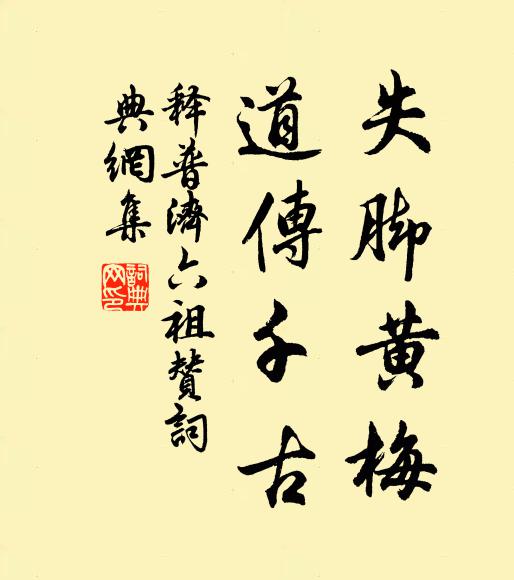 失脚黄梅
道傳千古
释普濟六祖贊詞
典網集
詞典网印